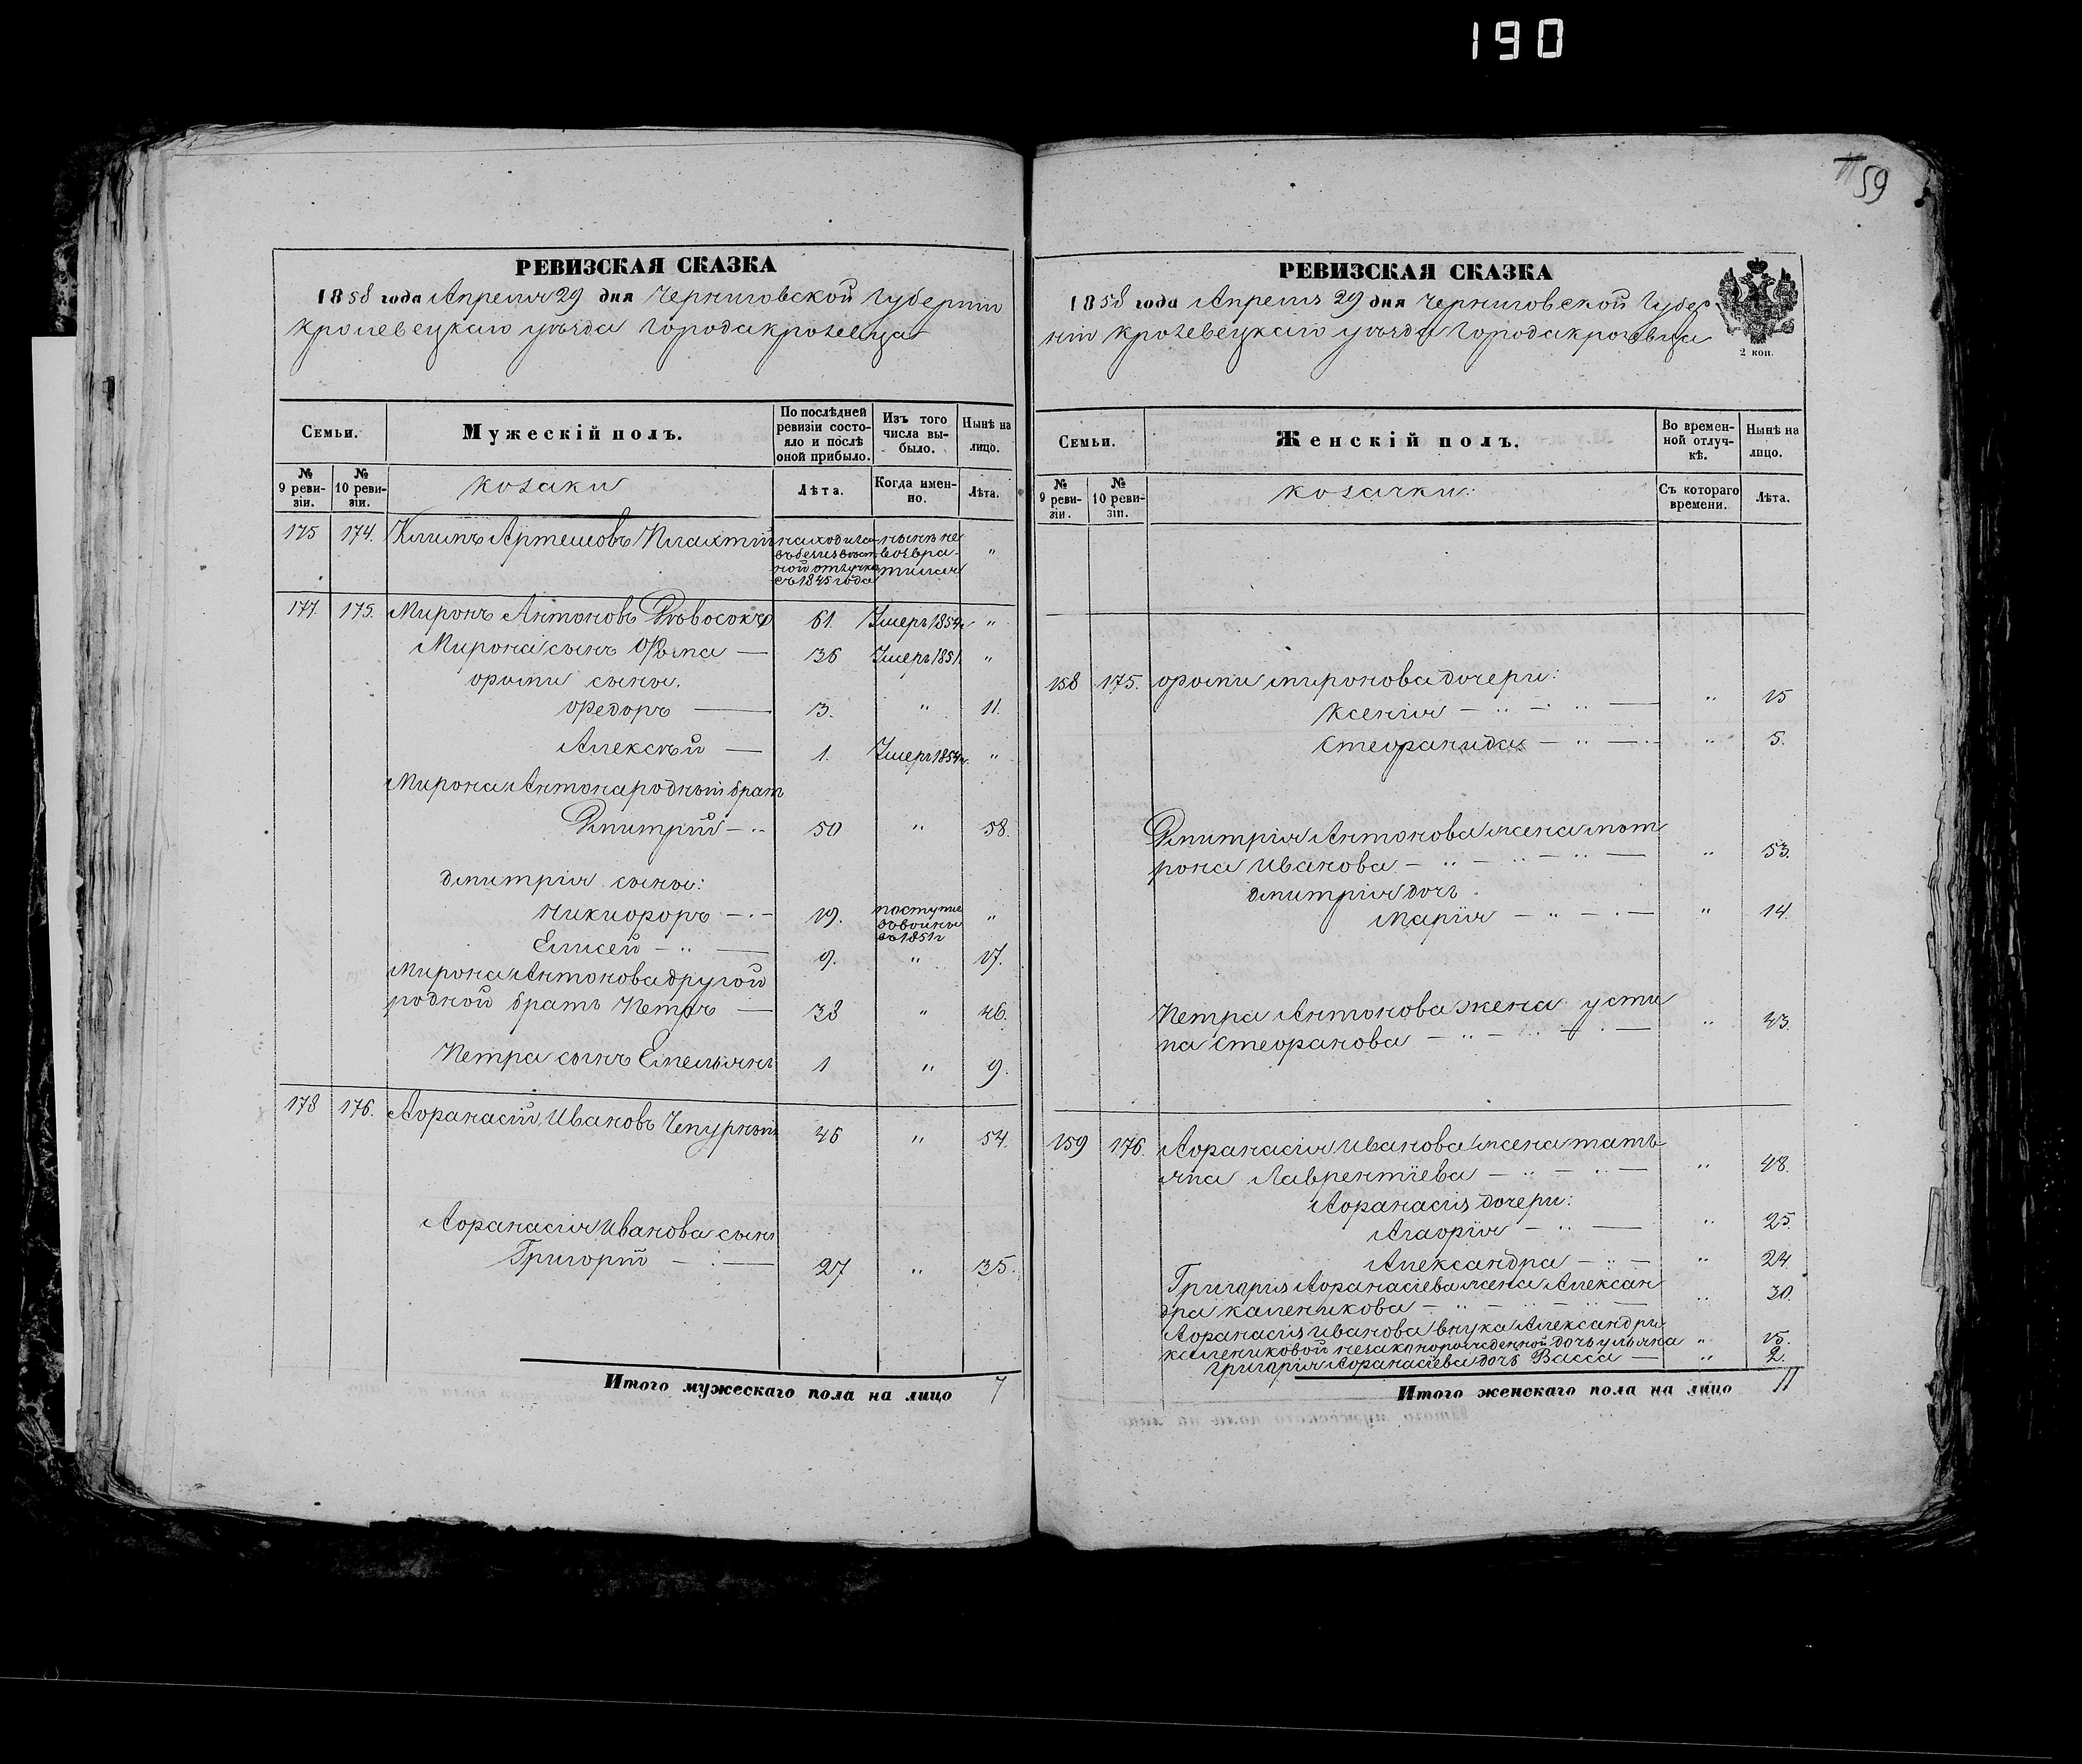 190
59
РЕВИЗСКАЯ СКАЗКА
1858 года Апреля 29 дня Черниговской Губерніи
Кролевецкаго уѣзда Города Кролевца
Семьи.
Мужескій полъ.
По послѣдней ревизіи состояло и послѣ оной прибыло.
Изъ того числа выбыло.
Нынѣ на лицо.
№ 9 ревизіи.
№ 10 ревизіи.
козаки
Лѣта.
Когда именно.
Лѣта.
175 174. Климъ Артемовъ находился нынѣ не "
въ безизвѣст возвра-
ной отлучке тился
съ 1845 года
177 175. Миронъ Антоновъ 61. Умеръ 1854г "
Мирона сынъ Фома — 36 Умеръ 1851 "
Фомы сыны.
Федоръ — 13. " 11.
Алексѣй — 1. Умеръ 1854г. "
Мирона Антона родный братъ
Дмитрій — 50 " 58.
Дмитрія сыны:
Никифоръ — 19. поступил "
въ воины
въ 1851г
Елисей — 9. " 17.
Мирона Антонова другой
родной братъ Петръ — 38 " 46.
Петра сынъ Емельянъ 1 " 9.
178 176. Афанасій Ивановъ Чепурный 46 " 54.
Афанасія Иванова сынъ
Григорій — 27 " 35.
Итого мужескаго пола на лицо 7
РЕВИЗСКАЯ СКАЗКА
1858 года Апреля 29 дня Черниговской Губер
ніи Кролевецкаго уѣзда Города Кролевца
2 коп.
Семьи.
Женскій полъ.
Во временной отлучкѣ.
Нынѣ на лицо.
№ 9 ревизіи.
№ 10 ревизіи.
козачки:
Съ котораго времени.
Лѣта.
158 175. Фомы Миронова дочери:
Ксенія — " 15
Стефанида — " 5.
Дмитрія Антонова жена Мот
рона Иванова — " 53.
Дмитрія дочь
Марія — " 14.
Петра Антонова жена Усти
на Стефанова — " 43.
159 176. Афанасія Иванова жена Тать
яна Лаврентіева — " 48.
Афанасія дочери:
Агафія — " 25.
Александра — " 24
Григорія Афанасіева жена Алексан
дра Каленикова — " 30.
Афанасія Иванова внука Александры
Калениковой незаконорожденной дочь Ульяна " 15.
Григорія Афанасіева дочь Васса — " 2.
Итого женскаго пола на лицо 11